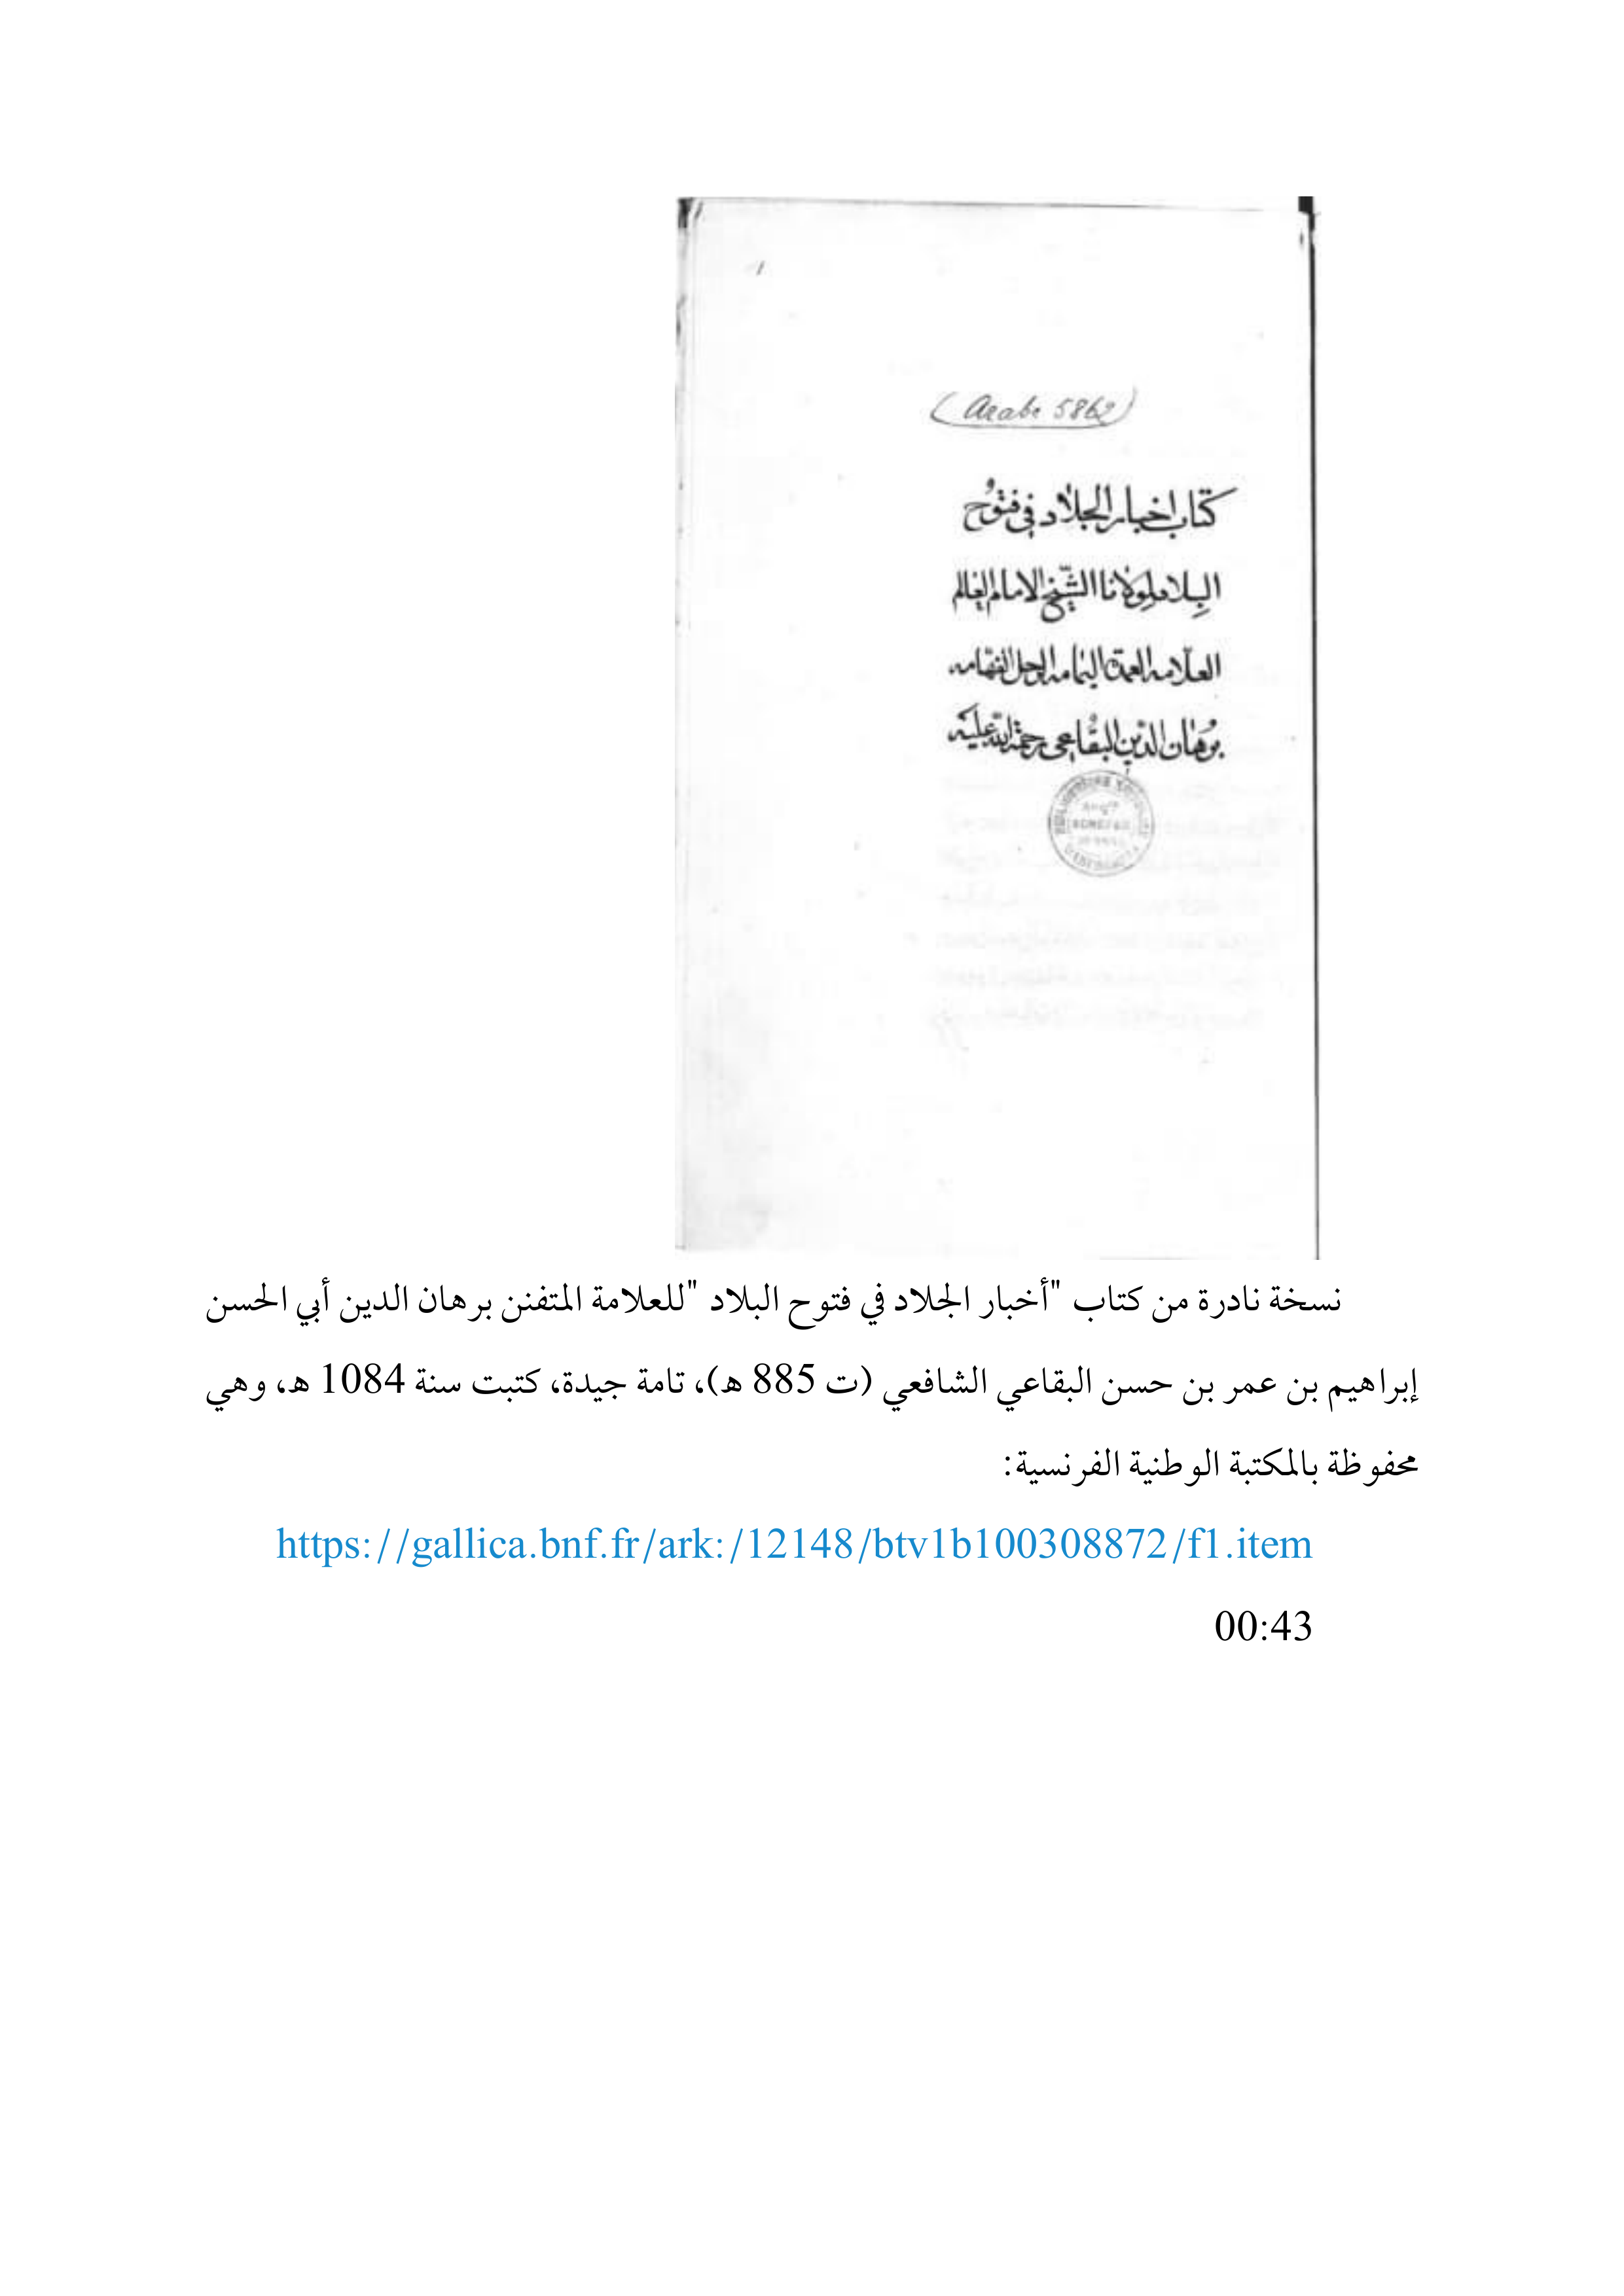 (Arabe 5862)
كتاب اخبار الجلاد في فتوح
البلاد لمولانا الشيخ الامام العالم
العلامه العمدة الرحل الفهامه
برهان الدين البقاعي رحمة الله عليه
نسخة نادرة من كتاب "أخبار الجلاد في فتوح البلاد "للعلامة المتفنن برهان الدين أبي الحسن
إبراهيم بن عمر بن حسن البقاعي الشافعي (ت 885 ه)، تامة جيدة، كتبت سنة 1084 ه، وهي
محفوظة بالمكتبة الوطنية الفرنسية:
https://gallica.bnf.fr/ark:/12148/btv1b100308872/f1.item
00:43